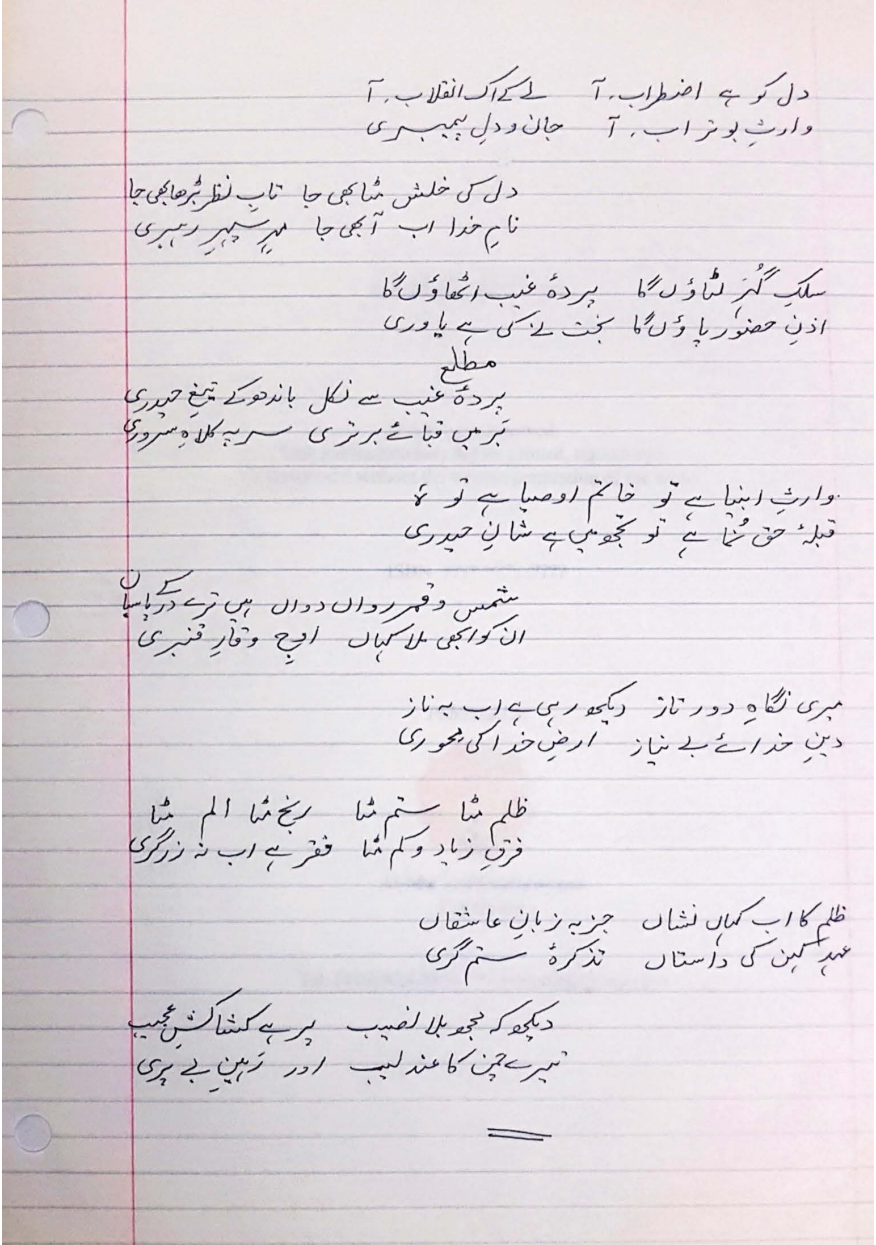 دل کو ہے اضطراب، آ لے کے اک انقلاب، آ
وارثِ بوتراب، آ جان و دلِ پیمبری
دل کی خلش مٹا بھی جا تابِ نظر بڑھا بھی جا
نامِ خدا اب آ بھی جا مہرِ سپہرِ رہبری
سلکِ گُہَر لٹاؤں گا پردۂ غیب اٹھاؤں گا
اذنِ حضور پاؤں گا بخت نے کی ہے یاوری
مطلع
پردۂ غیب سے نکل باندھ کے تیغِ حیدری
بَر میں قبائے برتری سر پہ کلاہِ سروری
وارثِ انبیا ہے تو خاتمِ اوصیا ہے تو
قبلۂ حق نُما ہے تو تجھ میں ہے شانِ حیدری
شمس و قمر رواں دواں ہیں ترے در کے پاسباں
ان کو ابھی ملا کہاں اوجِ وقارِ قنبری
میری نگاہِ دور تاز دیکھ رہی ہے اب بہ ناز
دینِ خدائے بے نیاز ارضِ خدا کی محوری
ظلم مٹا ستم مٹا رنج مٹا الم مٹا
فرقِ زیاد و کم مٹا فقر ہے اب نہ زرگری
ظلم کا اب کہاں نشاں جز بہ زبانِ عاشقاں
عہدِ کہن کی داستاں تذکرۂ ستم گری
دیکھ کہ مجھ بلا نصیب پر ہے کشاکشِ عجیب
تیرے چمن کا عندلیب اور رَہینِ بے پری